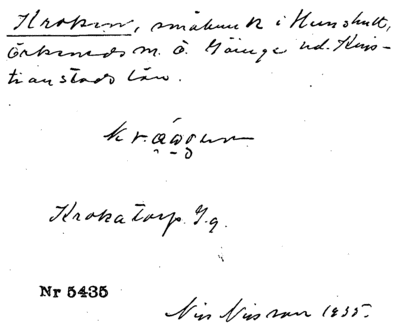 Kroken, småbruk i Hunshult,
Örkeneds sn. Ö. Göinge hd. Kris-
tianstads län.
Krokatorp. J. q.
Nr 5435
Nils Nilsson 1935.